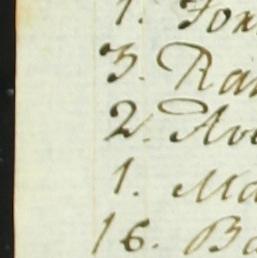 1. Fox
3. Ra
2. Ave
1. Ma
16. Ba